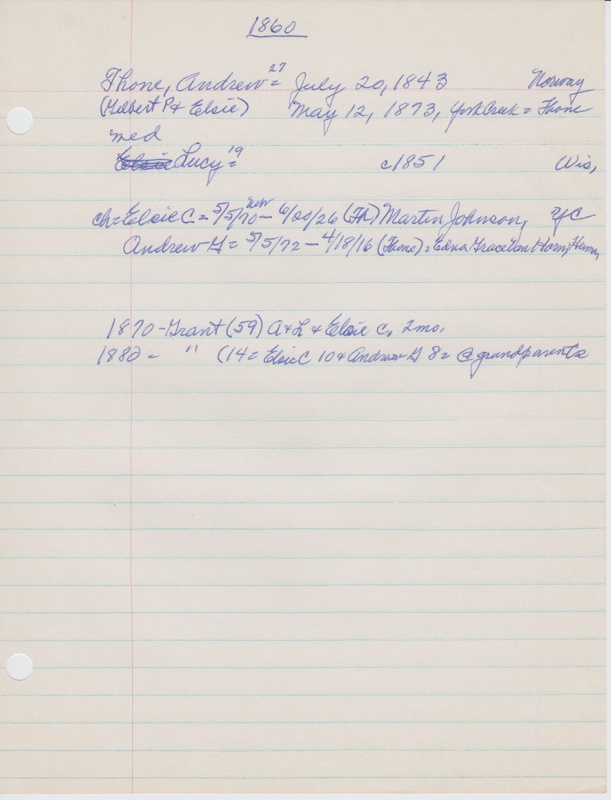 1860
Thone, Andrew=27 July 20, 1843 Norway
(Helbert P & Elsie) May 12, 1873, York Creek = Thone
med
Elsie Lucy=19 c1851 Wis,
ch=Elsie C.= 5/5/70 - 6/00/26 (Th) Martin Johnson, YC
Andrew G = 5/5/72 - 4/18/16 (Thone) = Edna Grace Van Horn,
1870 - Grant (59) A & L & Elsie C, 2 mo.
1880 - " (14 = Elsie C 10 & Andrew G 8 = @ grandparents